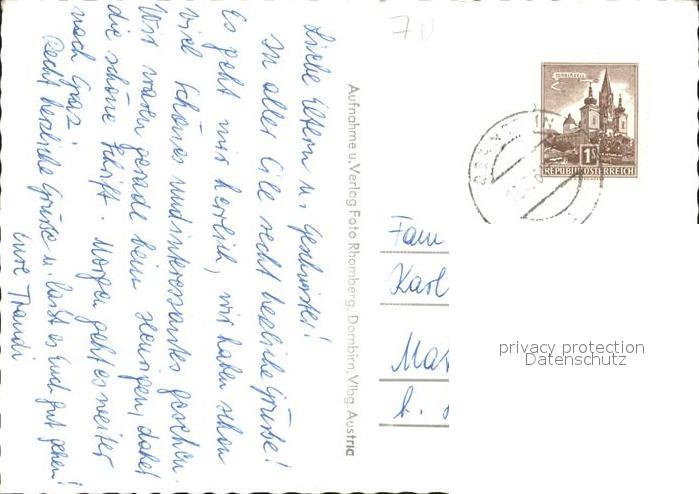 Liebe Eltern u. Geschwister!
In aller Eile recht herzliche Grüße!
Es geht mir herrlich, wir haben schon
viel Schönes und interessantes gesehen.
Wir waren gerade beim Heurigen, daher
die schöne Schrift. Morgen geht es weiter
nach Graz.
Recht herzliche Grüße u. laßt es Euch gut gehen!
Eure Traudi
Aufnahme u. Verlag Foto Rhomberg, Dornbirn, Vlbg. Austria
70
MARIAZELL
1S
REPUBLIK ÖSTERREICH
Fam
Karl
Mar
b.
privacy protection
Datenschutz